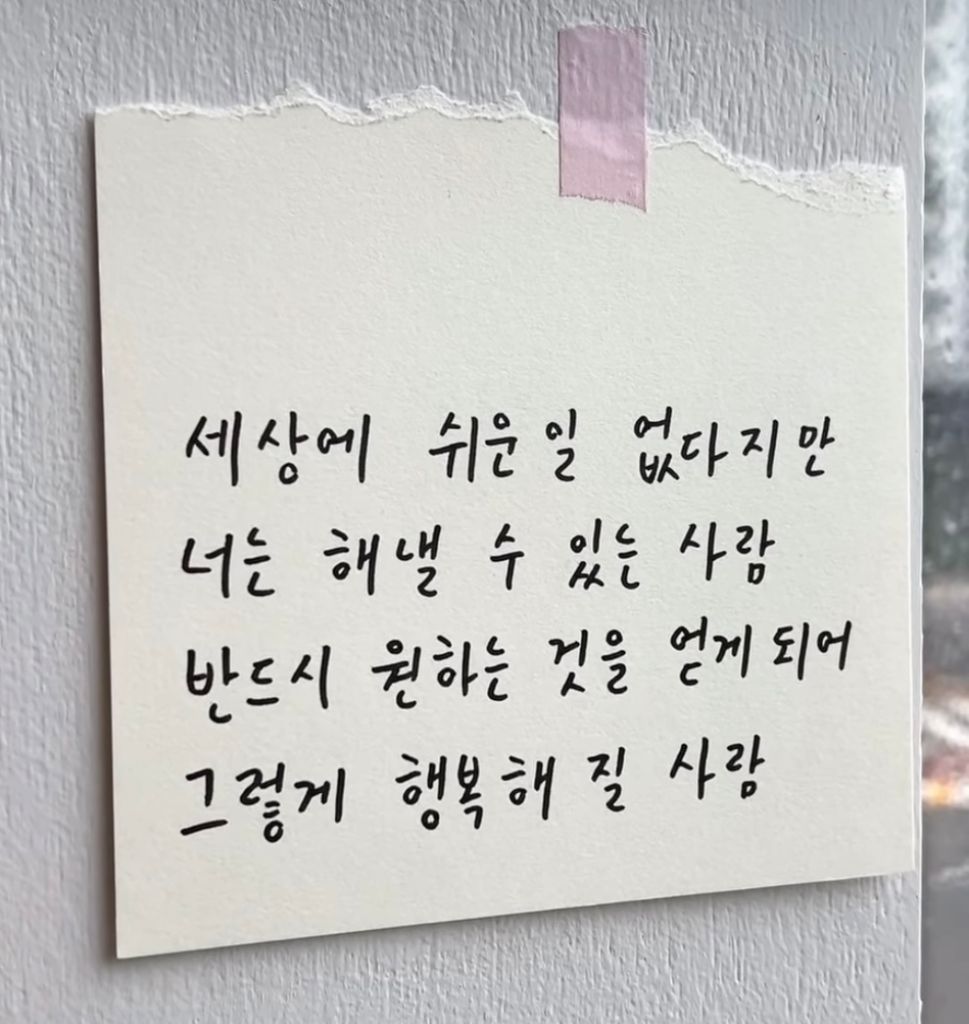 세상에 쉬운일 없다지만
너는 해낼 수 있는 사람
반드시 원하는 것을 얻게 되어
그렇게 행복해 질 사람